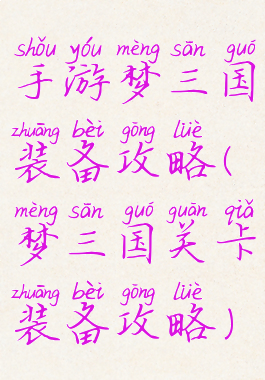 shǒu yóu mèng sān guó
手游梦三国
zhuāng bèi gōng lüè
装备攻略(
mèng sān guó guān qiǎ
梦三国关卡
zhuāng bèi gōng lüè
装备攻略)